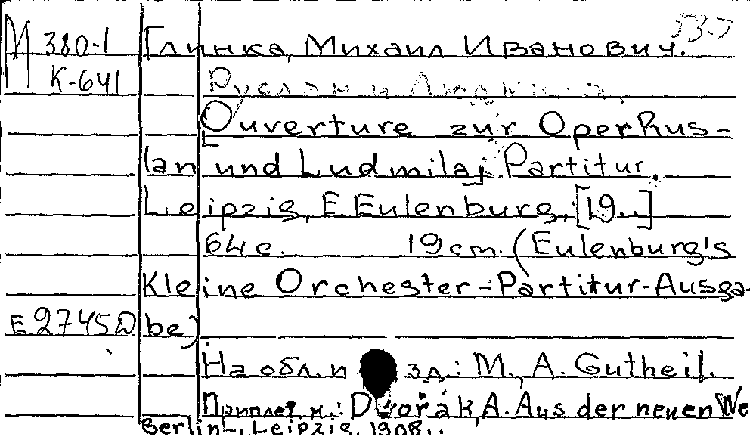 М 380-1 Глинка, Михаил Иванович. 53-7
К-641 Руслан и Людмила.
Ouverture zur Oper Rus-
lan und Ludmila. Partitur.
Leipzig, E. Eulenburg, [19..]
64 с. 19 cm. (Eulenburg's
Kleine Orchester-Partitur-Ausga-
E2745D be)
На обл. изд.: M., A. Gutheil.
Приплет. к.: Dvořák, A. Aus der neuen We
Berlin-Leipzig, 1908.